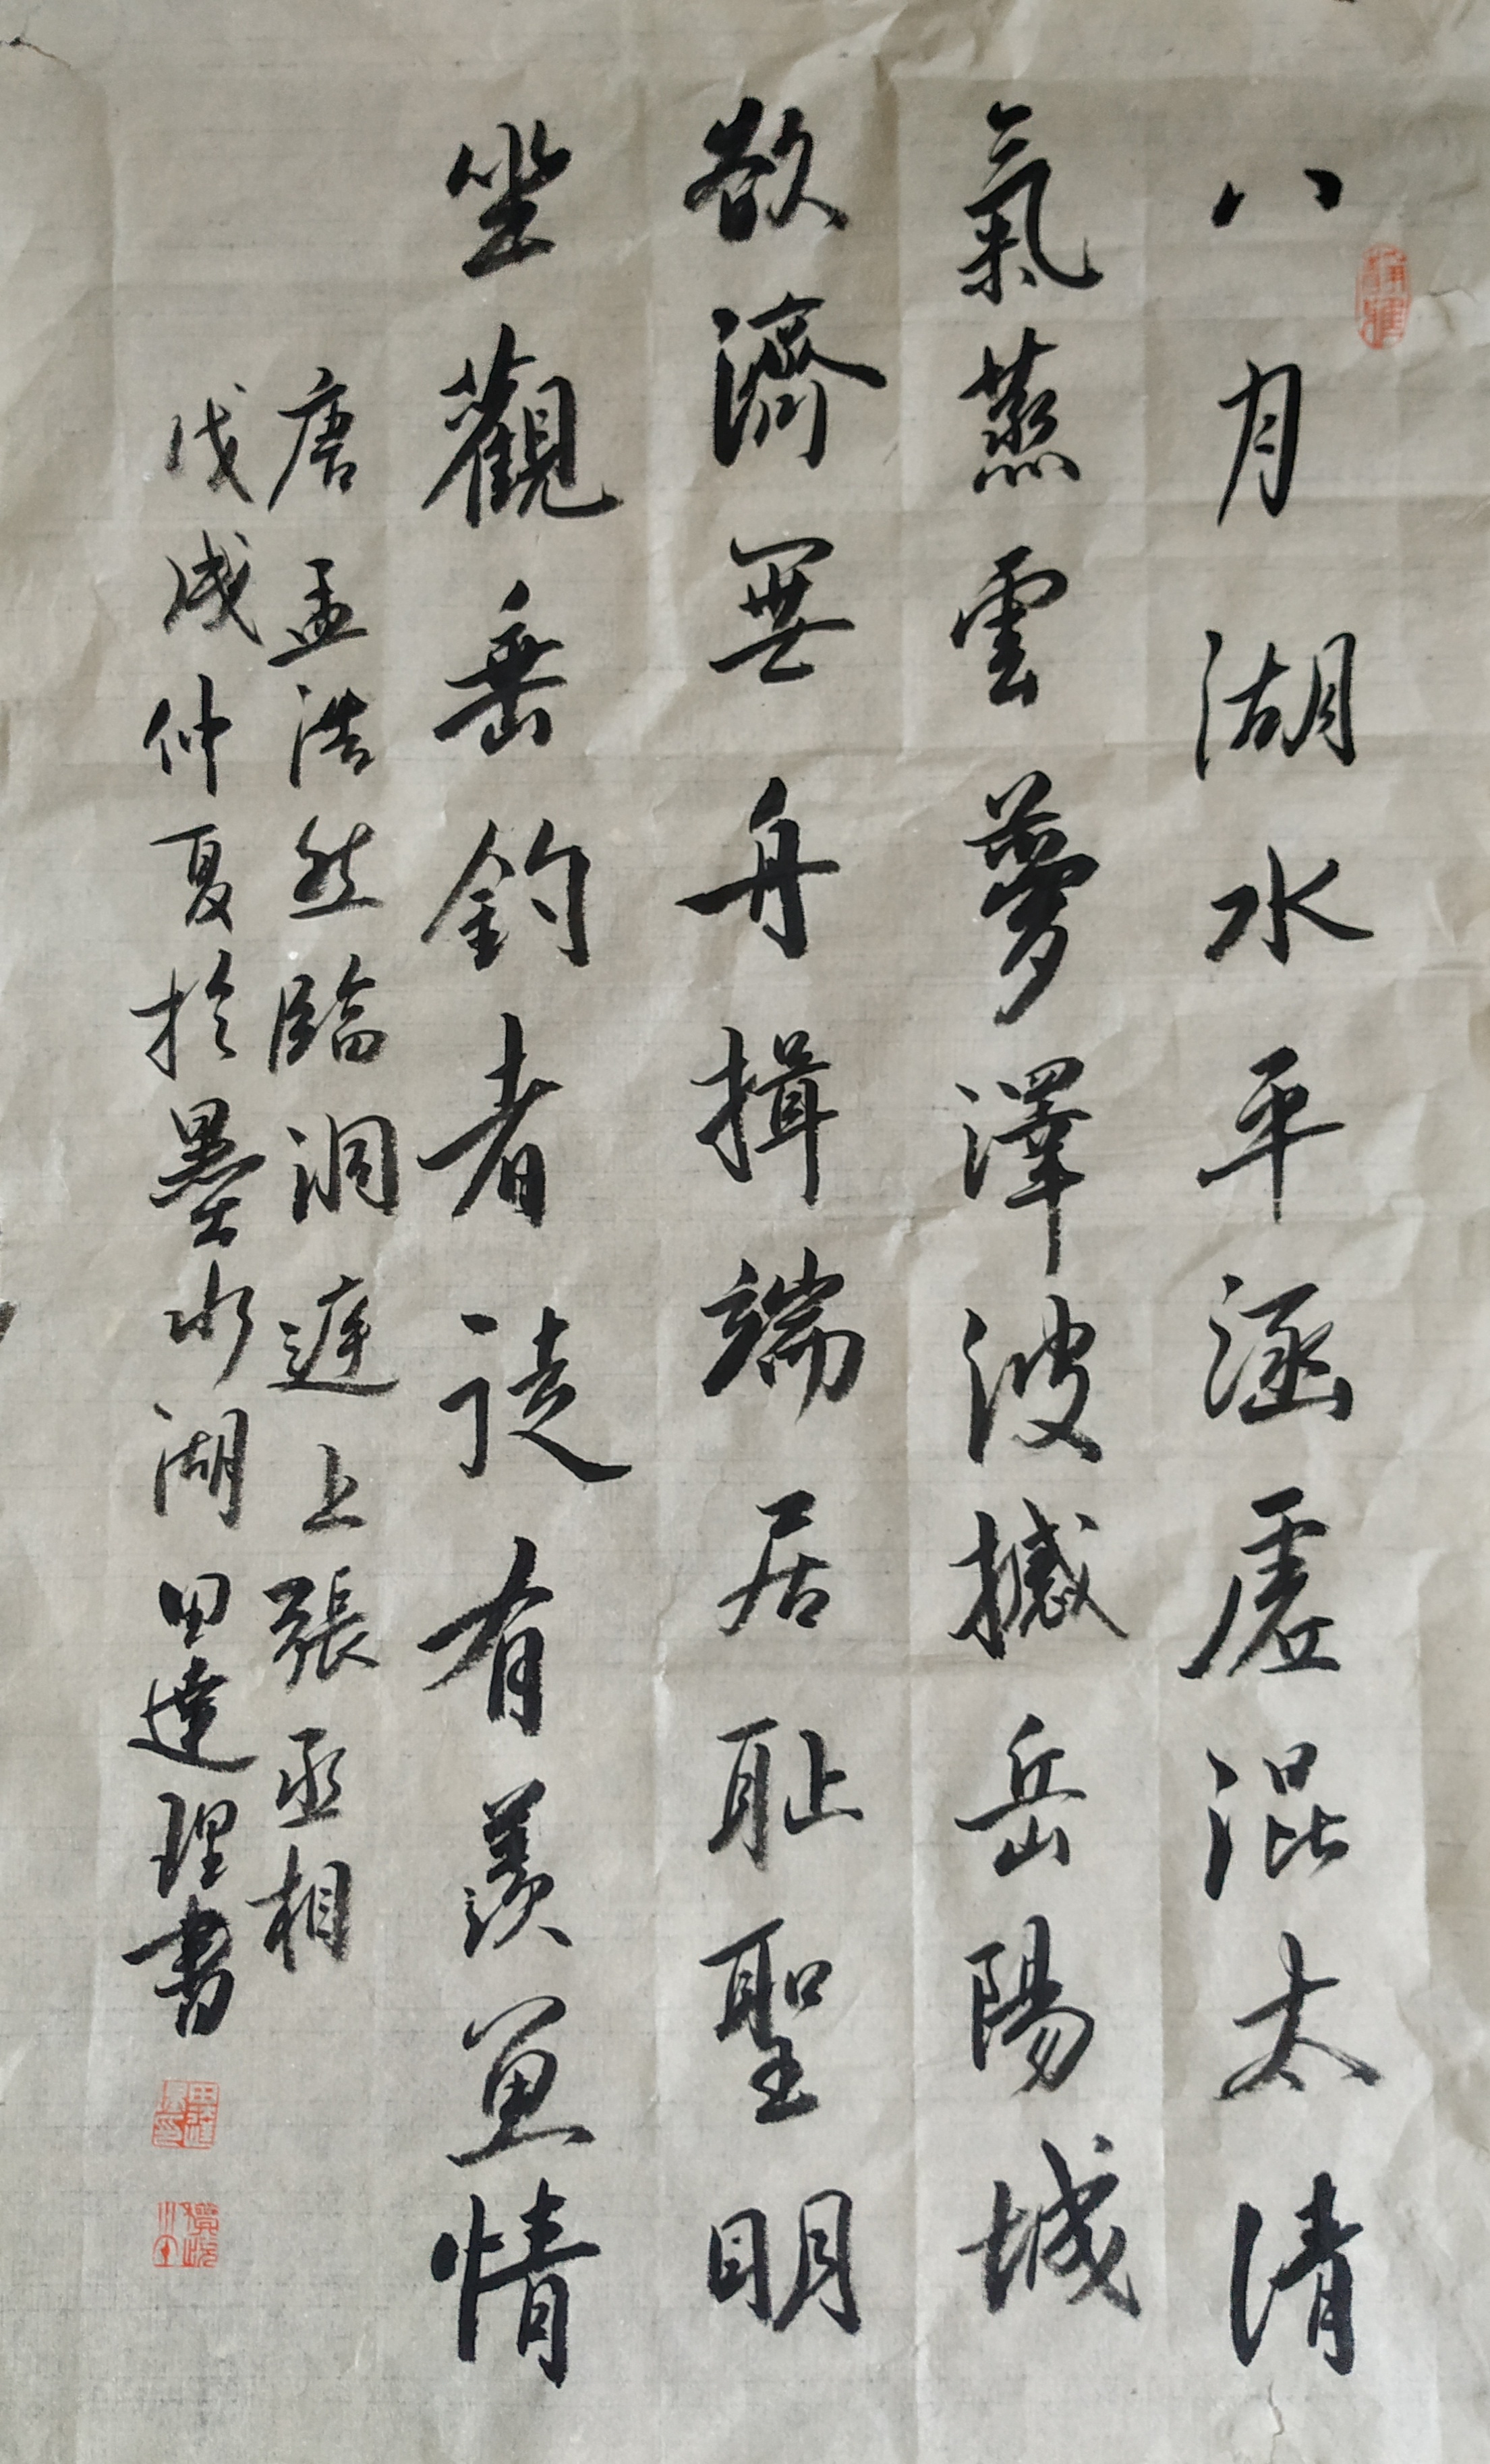 八月湖水平涵虛混太清
氣蒸雲夢澤波撼岳陽城
欲濟無舟揖端居恥聖明
坐觀垂釣者徒有羨魚情
唐孟浩然臨洞庭上張丞相
戊戌仲夏於墨水湖田達理書